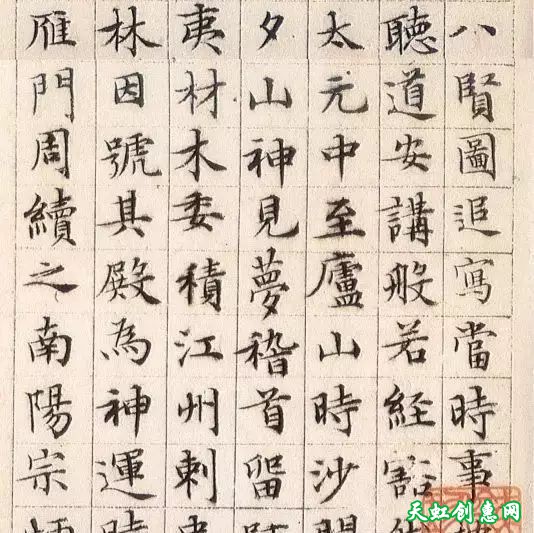 八賢圖追寫當時事
聽道安講般若經豁
太元中至廬山時沙
夕山神見夢稽首留
夷材木委積江州刺
林因號其殿為神運
雁門周續之南陽宗
天虹创惠网